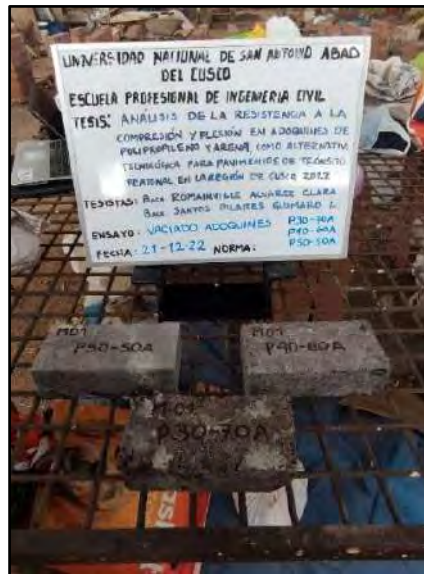 UNIVERSIDAD NACIONAL DE SAN ANTONIO ABAD
DEL CUSCO
ESCUELA PROFESIONAL DE INGENIERIA CIVIL
TESIS: ANALISIS DE LA RESISTENCIA A LA
COMPRESIÓN Y FLEXIÓN EN ADOQUINES DE
POLIPROPILENO Y ARENA, COMO ALTERNATIVA
TECNOLÓGICA PARA PAVIMENTOS DE TRÁNSITO
PEATONAL EN LA REGIÓN DE CUSCO 2022
TESISTAS: Bach ROMAINVILLE ALVAREZ CLARA
Bach SANTOS PILARES GUMARO L.
ENSAYO: VACIADO ADOQUINES P30-70A
P40-60A
FECHA: 21-12-22 NORMA: P50-50A
M01 M01
P50-50A P40-60A
M01
P30-70A